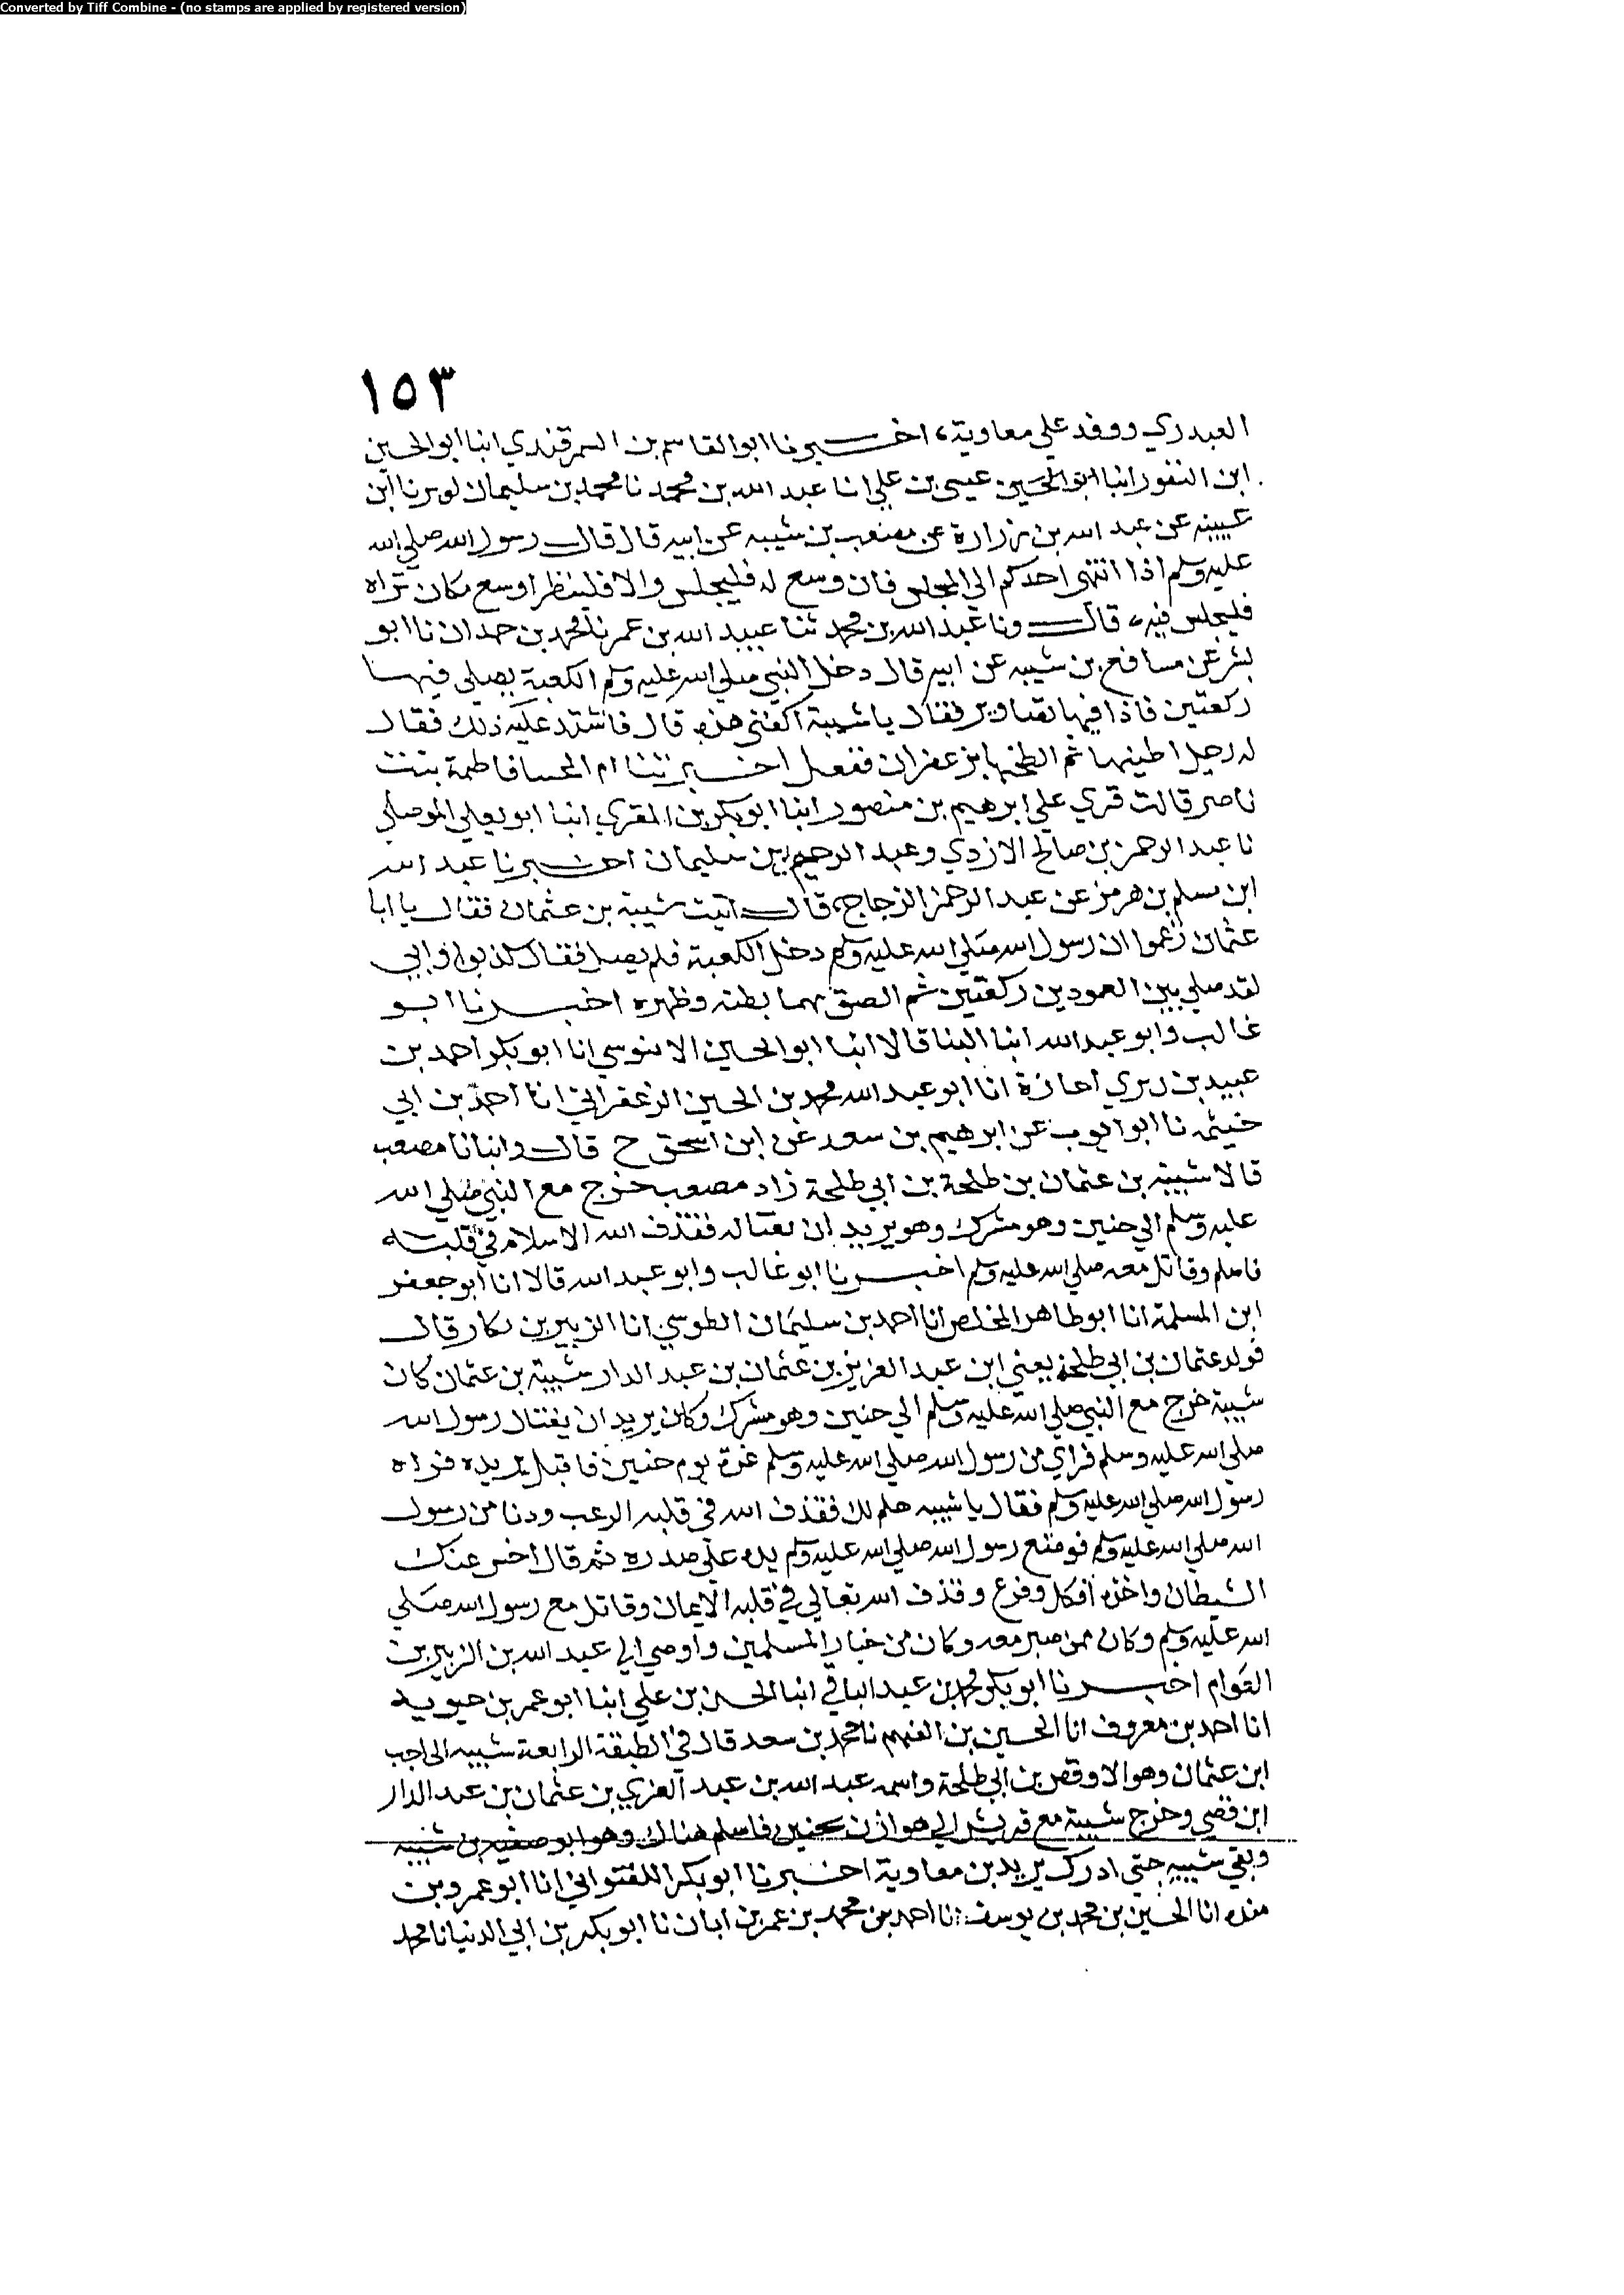 Converted by Tiff Combine - (no stamps are applied by registered version)
١٥٣
العبدري ووفد علي معاوية، اخبرنا ابوالقاسم بن السمرقندي انبا ابوالحسين
ابن النقور انبا ابوالحسين عيسي بن علي انا عبد الله بن محمد نا محمد بن سليمان لوين نا ابن
عيينه عن عبد الله بن زرارة عن مصعب بن شيبه عن ابيه قال قال رسول الله صلي الله
عليه وسلم اذا انتهى احدكم الي المجلس فان وسع له فليجلس والا فلينظر اوسع مكان تراه
فليجلس فيه، قال ونا عبد الله بن محمد ثنا عبيد الله بن عمر نا محمد بن حمدان نا ابو
بشر عن مسافع بن شيبه عن ابيه قال دخل النبي صلي الله عليه وسلم الكعبة يصلي فيها
ركعتين فاذا فيها تصاوير فقال يا شيبة اكفني هذه قال فاشتد عليه ذلك فقال
له رجل اطينها ثم الطخها بزعفران ففعل اخبرتنا ام المحسا فاطمة بنت
ناصر قالت قري علي ابرهيم بن منصور انبا ابوبكر بن المقري انبا ابو يعلي الموصلي
نا عبد الرحمن بن صالح الازدي وعبد الرحيم بن سليمان اخبرنا عبد الله
ابن مسلم بن هرمز عن عبد الرحمن الزجاج، قال اتيت شيبة بن عثمان فقال يا ابا
عثمان زعموا ان رسول الله صلي الله عليه وسلم دخل الكعبة فلم يصل فقال كذبوا وابي
لقد صلي بين العمودين ركعتين ثم الصق بهما بطنه وظهره اخبرنا ابو
غالب وابو عبد الله ابنا البنا قالا انبا ابوالحسين الابنوسي انا ابوبكر احمد بن
عبيد بن بيري اجازة انا ابو عبد الله محمد بن الحسين الزعفراني انا احمد بن ابي
خيثمه نا ابو ايوب عن ابرهيم بن سعد عن ابن اسحق ح قال وانبانا مصعب
قالا شيبة بن عثمان بن طلحة بن ابي طلحة زاد مصعب خرج مع النبي صلي الله
عليه وسلم الي حنين وهو مشرك وهو يريد ان يغتاله فقذف الله الاسلام في قلبه
فاسلم وقاتل معه صلي الله عليه وسلم اخبرنا ابو غالب وابو عبد الله قالا انا ابو جعفر
ابن المسلمة انا ابوطاهر المخلص انا احمد بن سليمان الطوسي انا الزبير بن بكار قال
فولد عثمان بن ابي طلحة يعني ابن عبد العزيز بن عثمان بن عبد الدار شيبة بن عثمان كان
شيبة خرج مع النبي صلي الله عليه وسلم الي حنين وهو مشرك وكان يريد ان يغتال رسول الله
صلي الله عليه وسلم فراي من رسول الله صلي الله عليه وسلم غرة يوم حنين فاقبل يريده فراه
رسول الله صلي الله عليه وسلم فقال يا شيبه هلم لك فقذف الله في قلبه الرعب ودنا من رسول
الله صلي الله عليه وسلم فوضع رسول الله صلي الله عليه وسلم يده علي صدره ثم قال اخس عنك
الشيطان واخذه افكل وفزع وقذف الله تعالي في قلبه الايمان وقاتل مع رسول الله صلي
الله عليه وسلم وكان ممن صبر معه وكان من خيار المسلمين واوصي الي عبد الله بن الزبير بن
العوام اخبرنا ابوبكر محمد بن عبد الباقي انبا الحسن بن علي انبا ابوعمر بن حيويه
انا احمد بن معروف انا الحسين بن الفهم نا محمد بن سعد قال في الطبقة الرابعة شيبه الحاجب
ابن عثمان وهو الاوقص بن ابي طلحة واسمه عبد الله بن عبد العزي بن عثمان بن عبد الدار
ابن قصي وخرج شيبة مع قريش الي هوازن بحنين فاسلم هناك وهو ابو صفيه بن شيبه
وبقي شيبه حتى ادرك يزيد بن معاوية اخبرنا ابوبكر اللفتواني انا ابو عمرو بن
منده انا الحسين بن محمد بن يوسف انا احمد بن محمد بن عمر بن ابان نا ابوبكر بن ابي الدنيا نا محمد